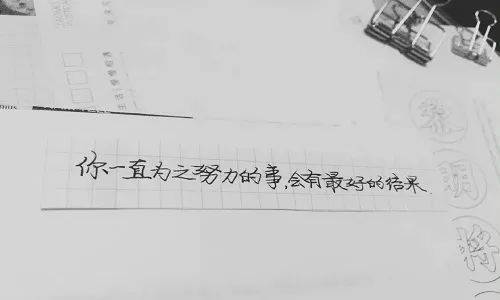 你一直为之努力的事,会有最好的结果.
将